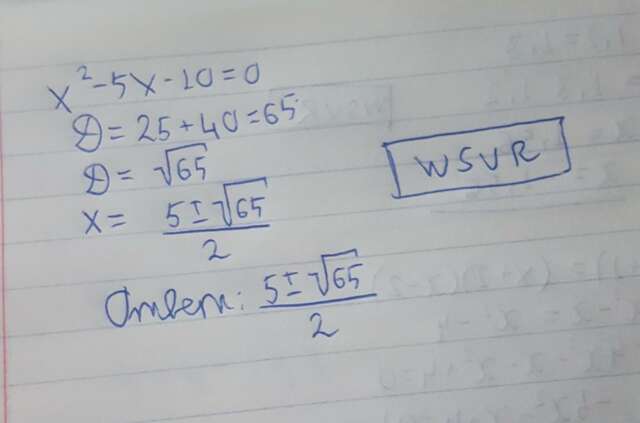 x² - 5x - 10 = 0
D = 25 + 40 = 65
D = √65
x = (5 ± √65) / 2
WSVR
Ответ: (5 ± √65) / 2